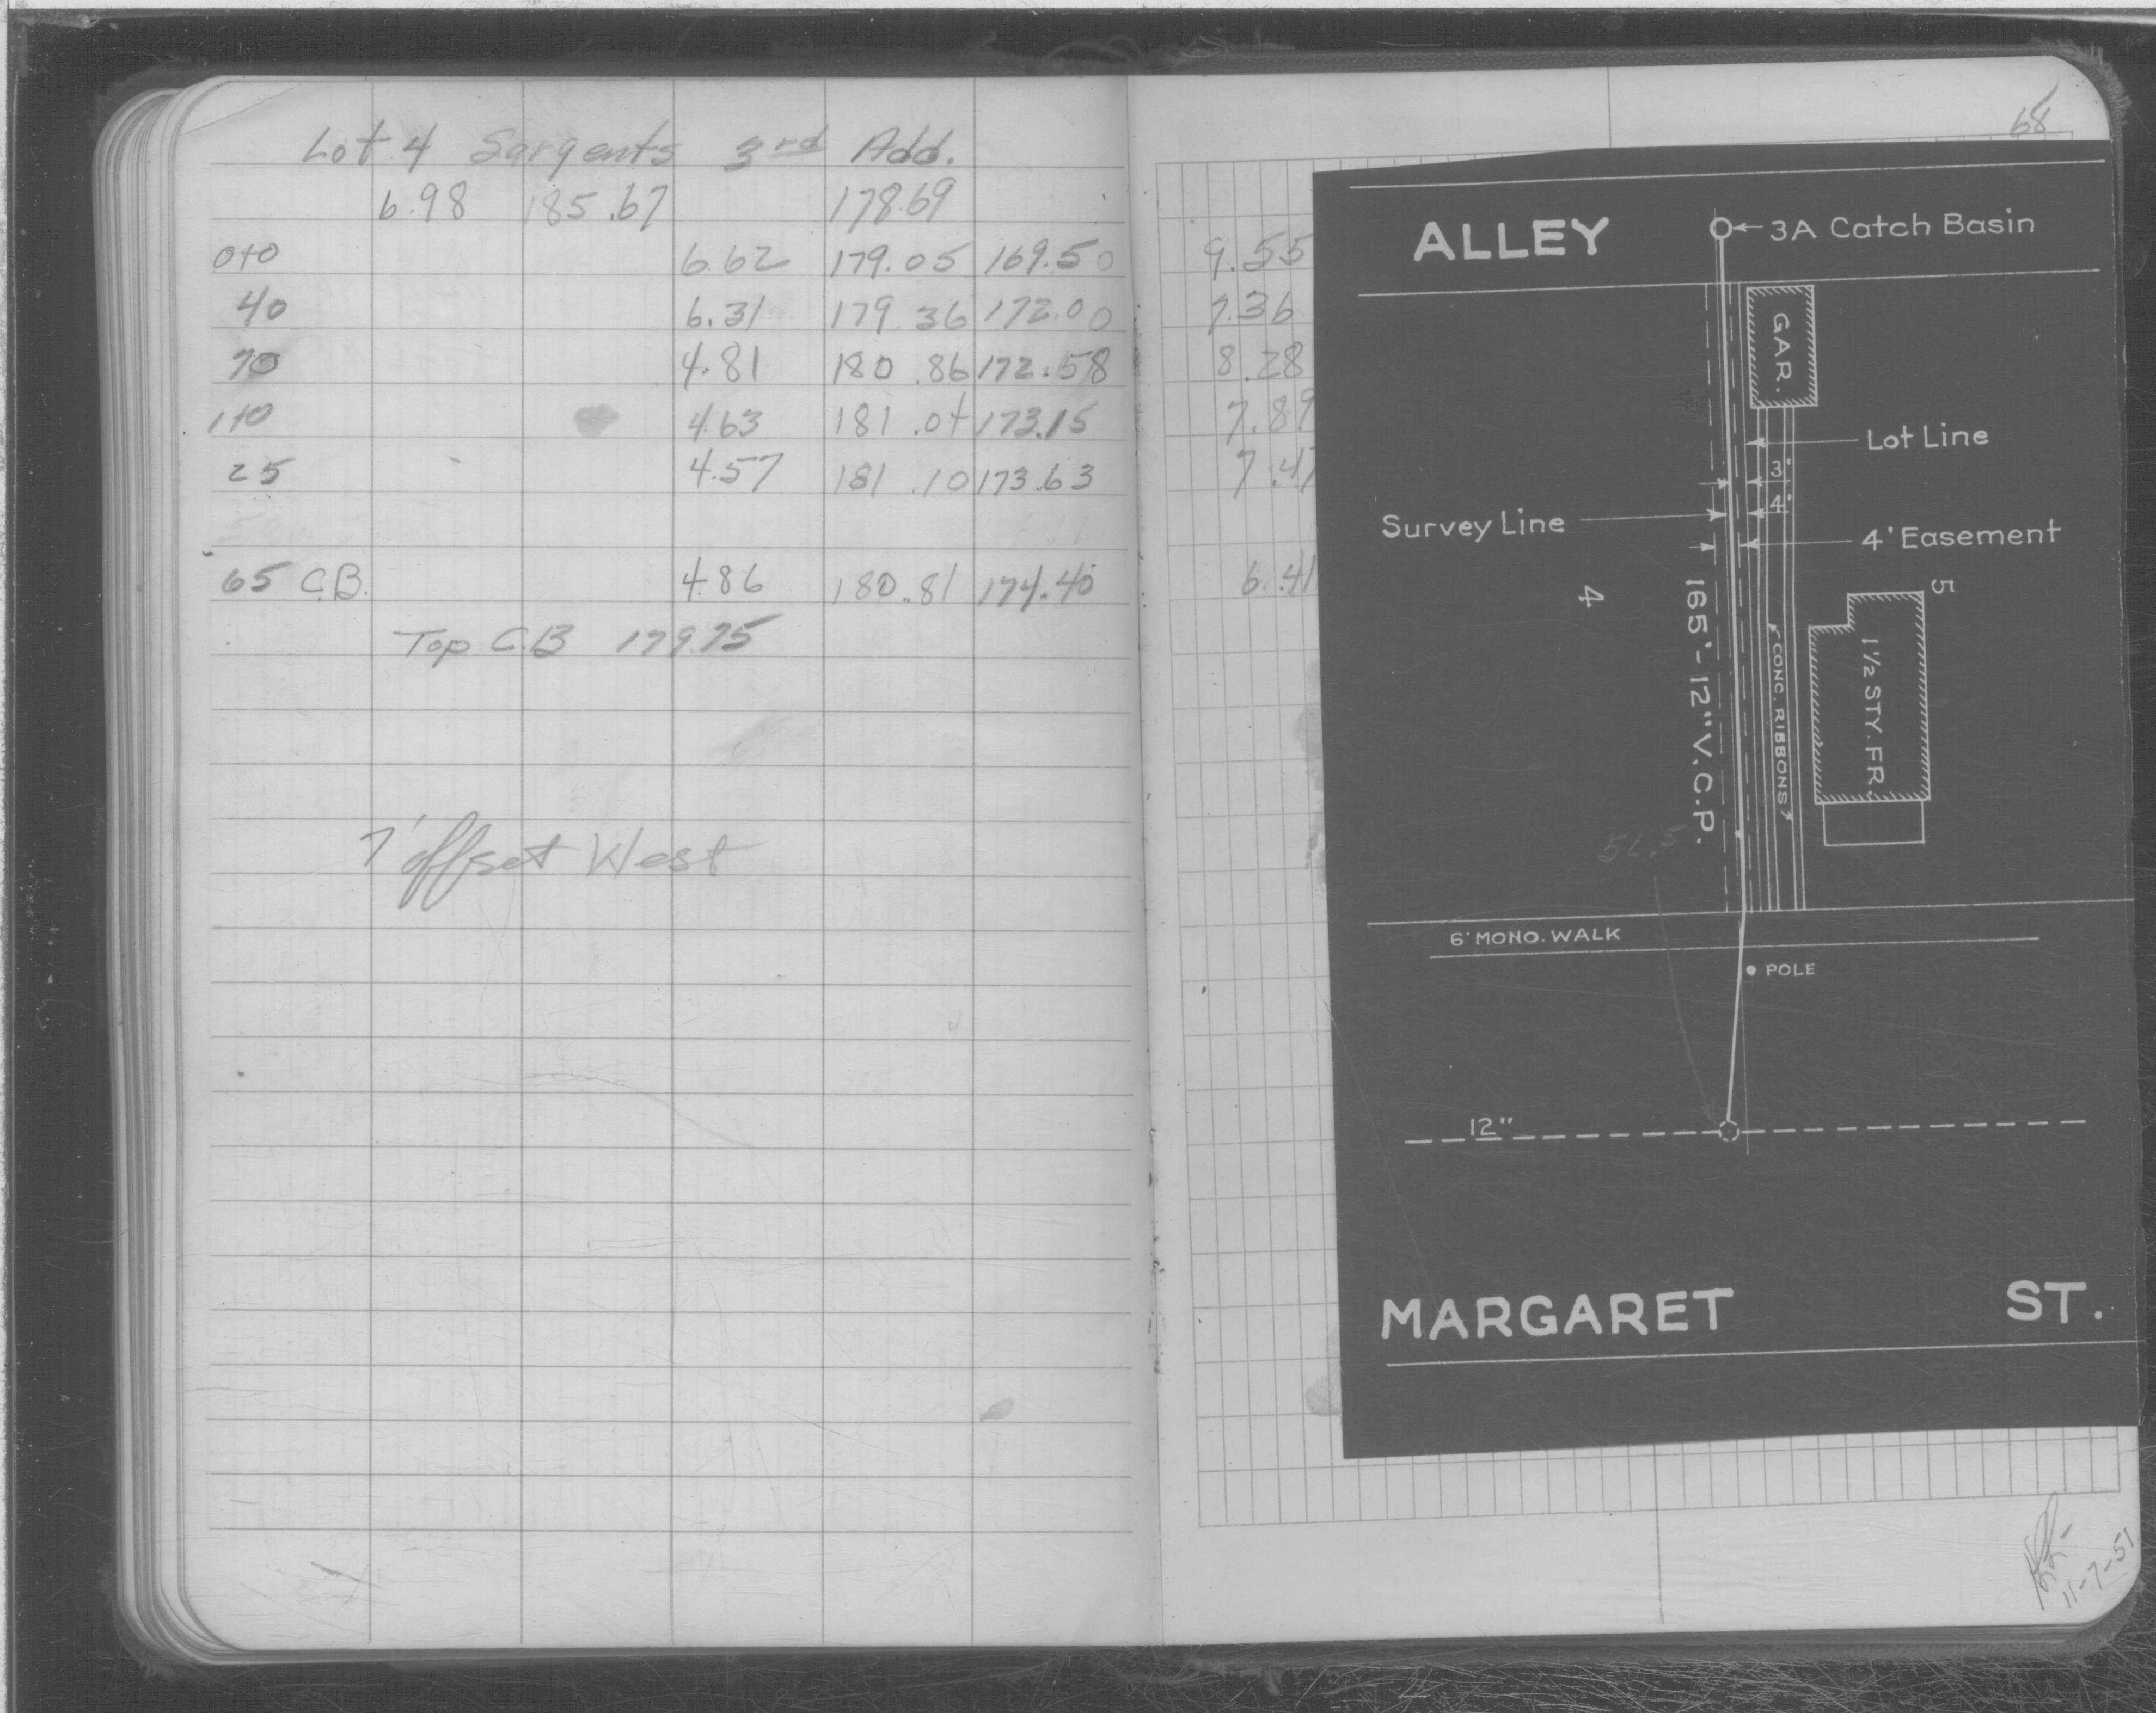 Lot 4 Sargents 3rd Add.
6.98 185.67 178.69
0+0 6.62 179.05 169.50 9.55
40 6.31 179 36 172.00 7.36
70 4.81 180.86 172.58 8.28
1+0 4.63 181.04 173.15 7.89
25 4.57 181.10 173.63 7.47
65 C.B. 4.86 180.81 174.40 6.41
Top C.B 179.75
7' offset West
68
ALLEY
3A Catch Basin
GAR.
Lot Line
3'
4'
Survey Line
4' Easement
4
5
165'-12" V.C.P.
CONC. RIBBONS
1 1/2 STY. FR.
56.5
6' MONO. WALK
POLE
12"
MARGARET ST.
11-7-51